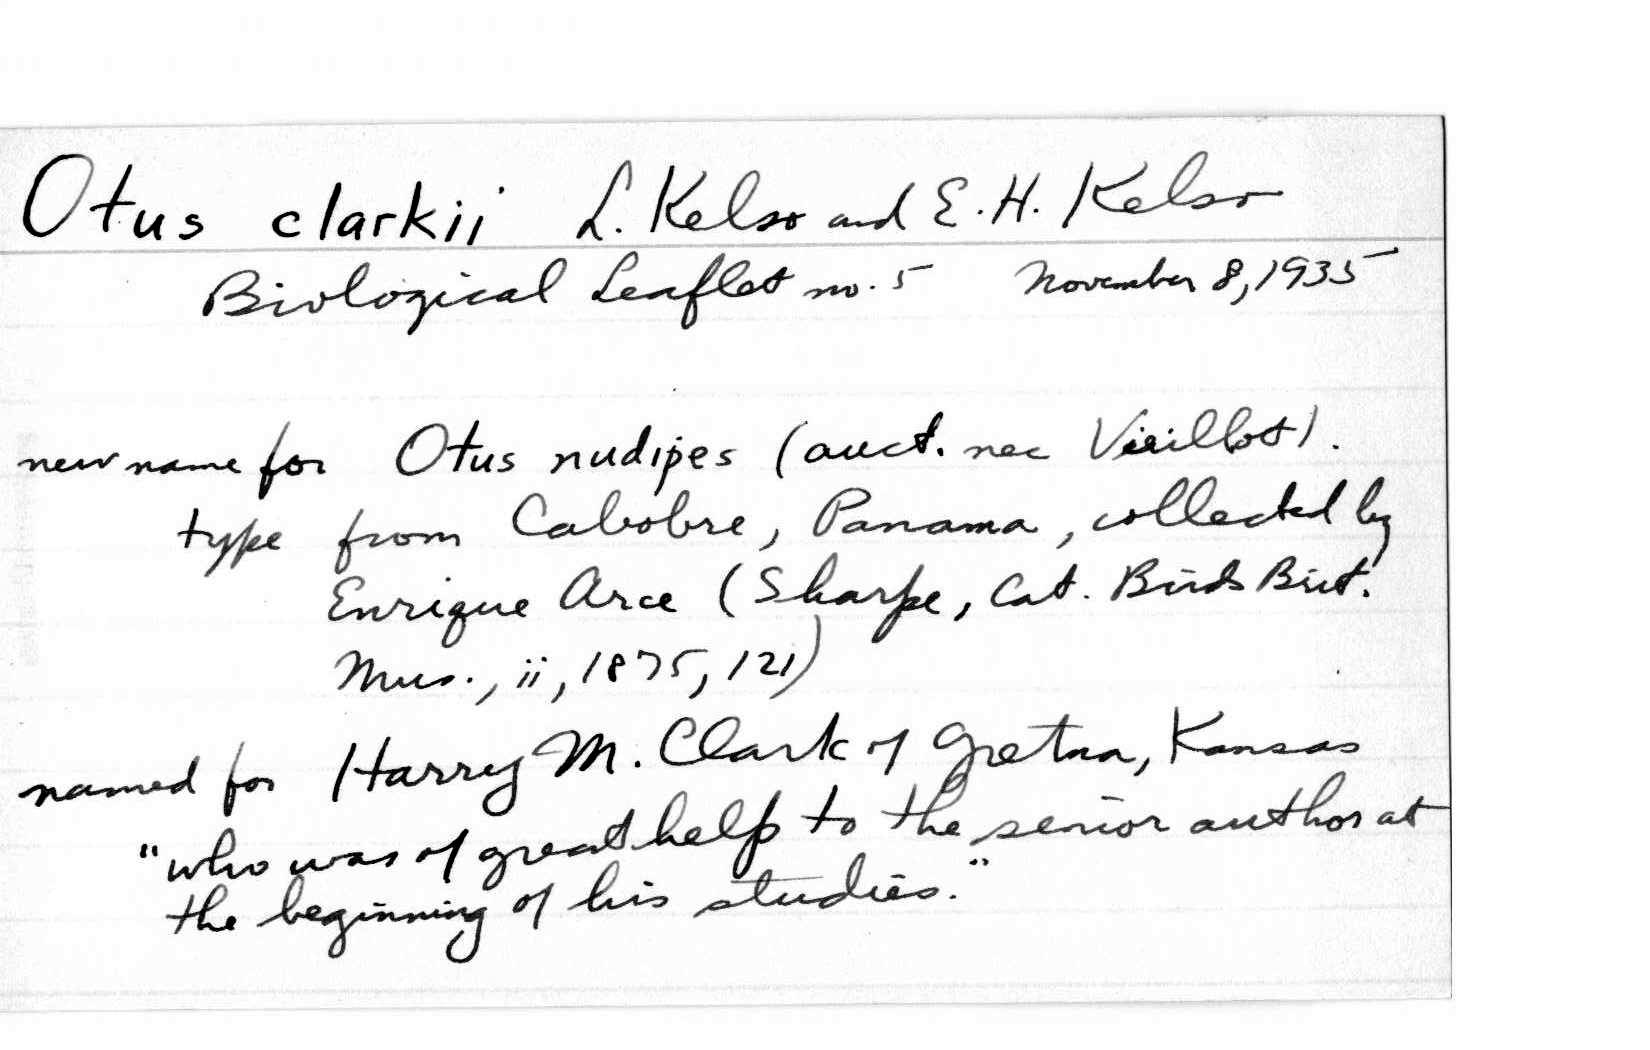 Otus clarkii L. Kelso and E. H. Kelso
Biological Leaflet no. 5 November 8, 1935
new name for Otus nudipes (auct. nec Vieillot).
type from Calobre, Panama, collected by
Enrique Arce (Sharpe, Cat. Birds Brit.
Mus., ii, 1875, 121)
named for Harry M. Clark of Gretna, Kansas
"who was of great help to the senior author at
the beginning of his studies."